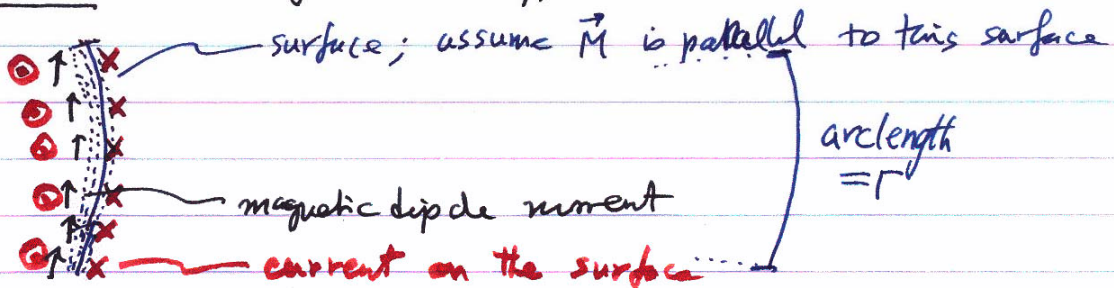 surface; assume M⃗ is parallel to this surface
arclength
= r
magnetic dipole moment
current on the surface